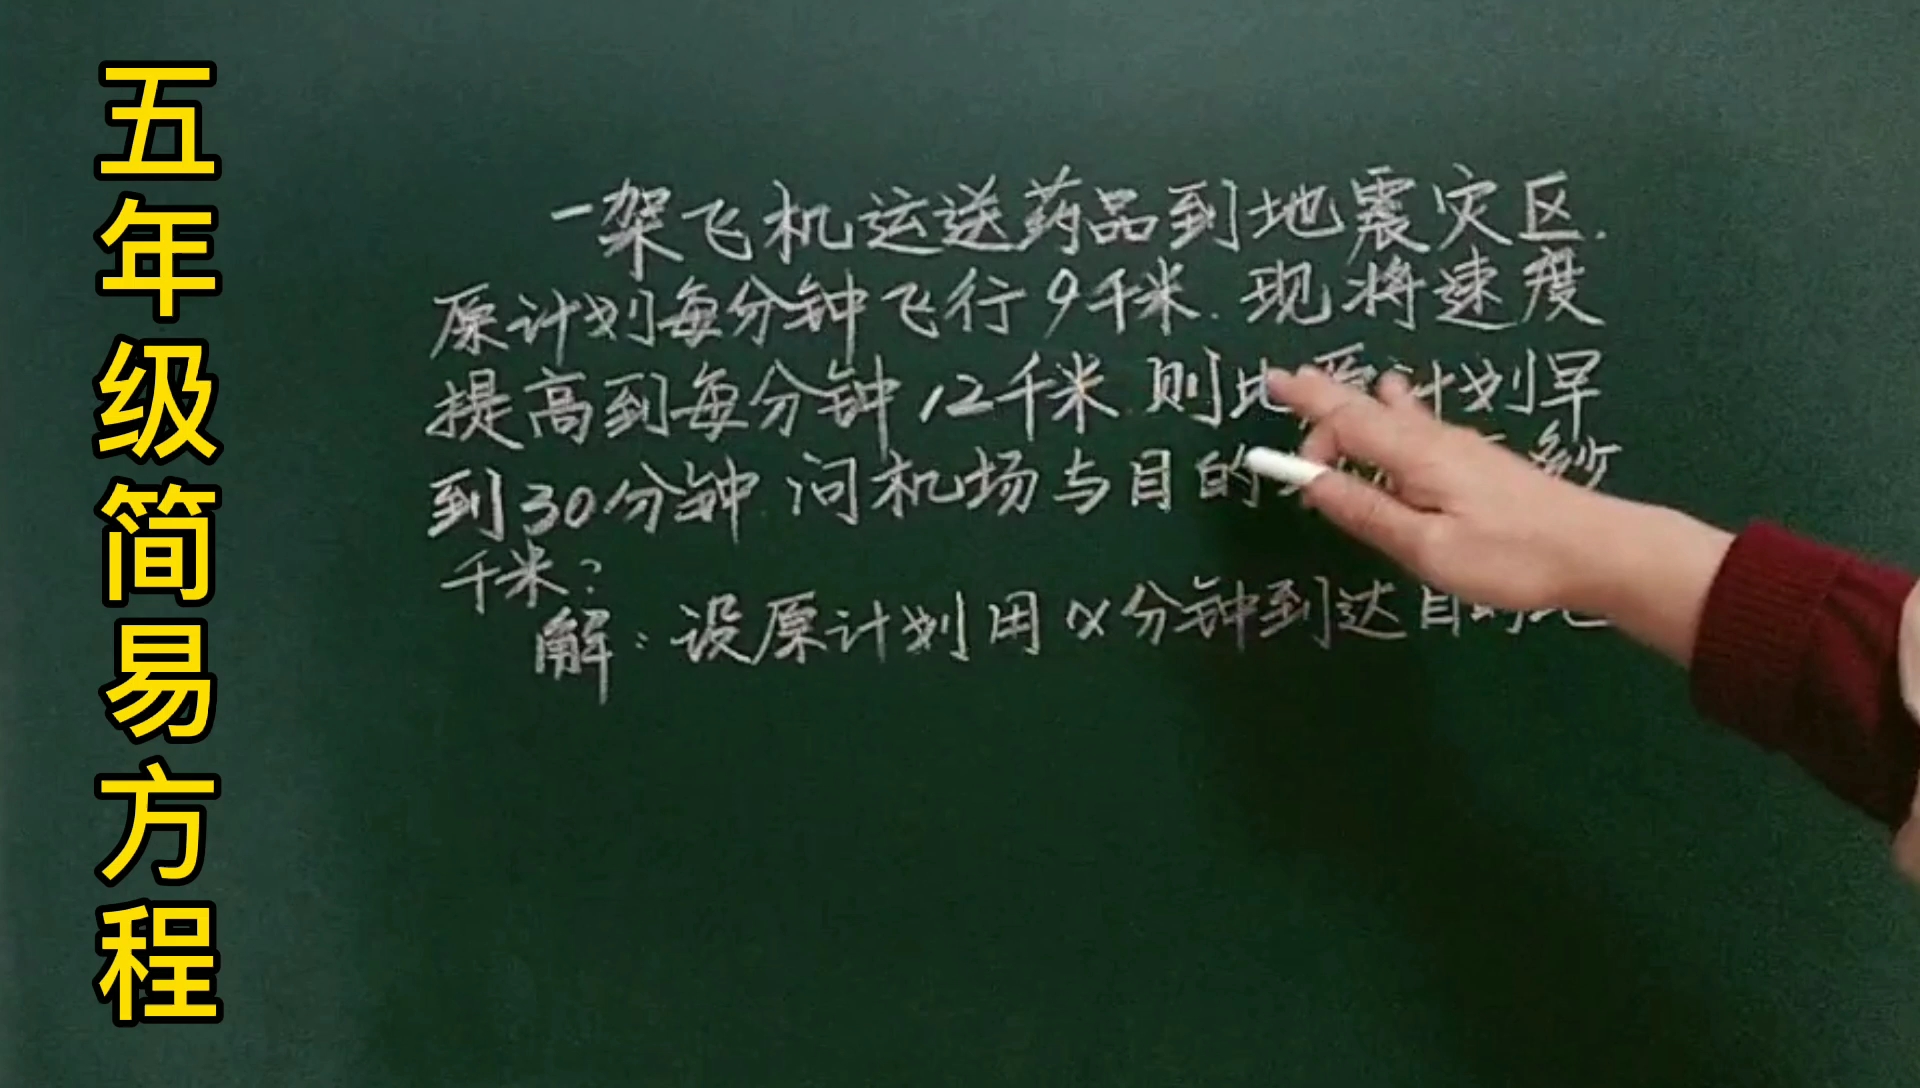 五年级简易方程
一架飞机运送药品到地震灾区.
原计划每分钟飞行9千米.现将速度
提高到每分钟12千米.则比原计划早
到30分钟 问机场与目的
千米?
解:设原计划用x分钟到达目的地